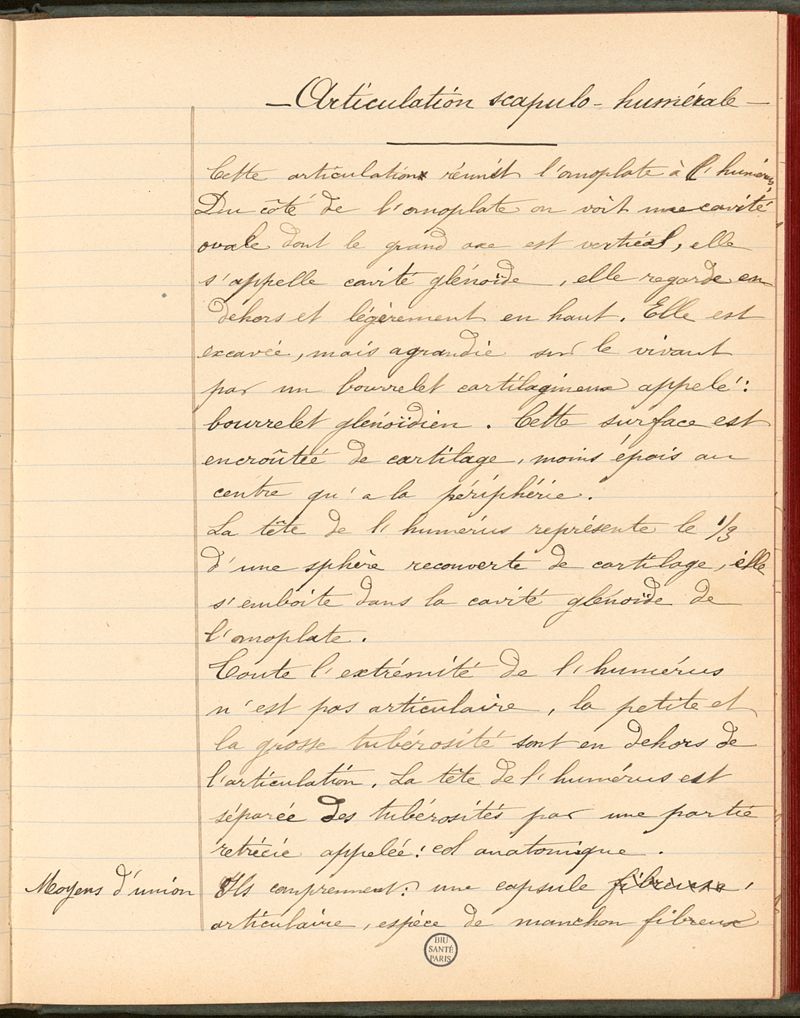 — Articulation scapulo-humérale —
Cette articulation réunit l'omoplate à l'humérus
Du côté de l'omoplate on voit une cavité
ovale dont le grand axe est vertical, elle
s'appelle cavité glénoïde, elle regarde en
dehors et légèrement en haut. Elle est
excavée, mais agrandie sur le vivant
par un bourrelet cartilagineux appelé :
bourrelet glénoïdien. Cette surface est
encroûtée de cartilage, moins épais au
centre qu'a la périphérie.
La tête de l'humérus représente le 1/3
d'une sphère recouverte de cartilage, elle
s'emboite dans la cavité glénoïde de
l'omoplate.
Toute l'extrémité de l'humérus
n'est pas articulaire, la petite et
la grosse tubérosité sont en dehors de
l'articulation. La tête de l'humérus est
séparée des tubérosités par une partie
rétrécie appelée : col anatomique.
Moyens d'union Ils comprennent : une capsule fibreuse,
articulaire, espèce de manchon fibreux
BIU
SANTÉ
PARIS